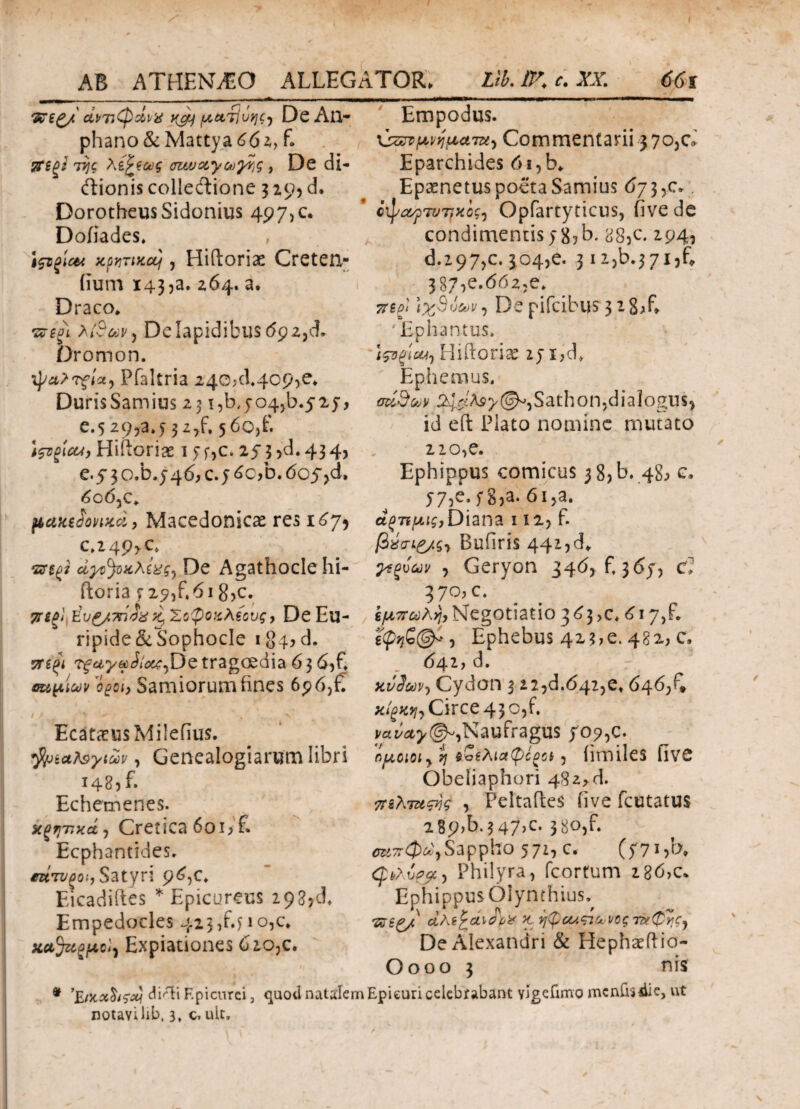 AB ATHENÆO ALLEGATOR. Lib. IV. c. XX. 661
περὶ ἀντιφάνȣ καὶ ματlύης, De An-
phano & Mattya 662, f.
περὶ τῆς λέξεως συναγωγῆς, De di-
ctionis collectione 329, d.
Dorotheus Sidonius 497, c.
Dosiades.
ἱστορίαι κρητικαὶ, Historiæ Creten-
sium 143, a. 264. a.
Draco.
περὶ λίθων, De lapidibus 692, d.
Dromon.
ψαλτρία, Psaltria 240, d. 409, e.
Duris Samius 231, b. 504, b. 525,
e. 529, a. 532, f. 560, f.
ἱστορίαι, Historiæ 155, c. 253, d. 434,
e. 530. b. 546, c. 560, b. 605, d.
606, c.
μακεδονικὰ, Macedonicæ res 167,
c. 249, c.
περὶ ἀγαθοκλέȣς, De Agathocle hi-
storia 529, f. 618, c.
περὶ Εὐριπίδȣ κ̀ Σοφοκλέους, De Eu-
ripide & Sophocle 184, d.
περὶ τραγῳδίας, De tragœdia 636, f.
σαμίων ὅροι, Samiorum fines 696, f.
Ecatæus Milesius.
γενεαλογιῶν, Genealogiarum libri
148, f.
Echemenes.
κρητικὰ, Cretica 601, f.
Ecphantides.
σάτυροι, Satyri 96, c.
Eicadistes * Epicureus 298, d.
Empedocles 423, f. 510, c.
καθαρμοὶ, Expiationes 620, c.
Empodus.
ὑπομνήματα, Commentarii 370, c.
Eparchides 61, b.
Epænetus poëta Samius 673, c.
ὀψαρτυτικὸς, Opsartyticus, sive de
condimentis 58, b. 88, c. 294,
d. 297, c. 304, e. 312, b. 371, f.
387, e. 662, e.
περὶ ἰχθύων, De piscibus 328, f.
Ephantus.
ἱστορίαι, Historiæ 251, d.
Ephemus.
σάθων διάλογος, Sathon, dialogus,
id est Plato nomine mutato
220, e.
Ephippus comicus 38, b. 48, c.
57, e. 58, a. 61, a.
ἄρτεμις, Diana 112, f.
βȣσιρις, Busiris 442, d.
γερύων, Geryon 346, f. 365, c.
370, c.
ἐμπωλὴ, Negotiatio 363, c. 617, f.
ἔφηβος, Ephebus 423, e. 482, c.
642, d.
κύδων, Cydon 322, d. 642, e. 646, f.
κίρκη, Circe 430, f.
ναύαγος, Naufragus 509, c.
ὅμοιοι, ἢ ὀβελιαφόροι, similes sive
Obeliaphori 482, d.
πελταστὴς, Peltastes sive scutatus
289, b. 347, c. 380, f.
σαπφὼ, Sappho 571, c. (571, b.
φιλύρᾳ, Philyra, scortum 286, c.
Ephippus Olynthius.
περὶ ἀλεξάνδρȣ κ̀ ἡφαιστίωνος ταφῆς,
De Alexandri & Hephæstio-
Oooo 3 nis
* Ἐικαδισταὶ dicti Epicurei, quod natalem Epicuri celebrabant vigesimo mensis die, ut
notavi lib. 3. c. ult.